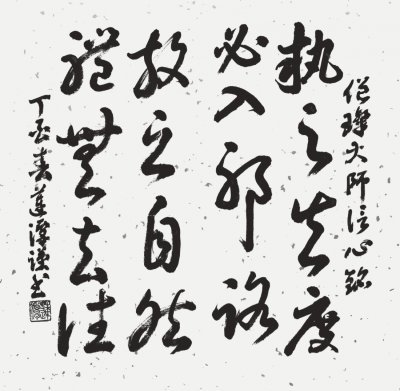 僧璨大師信心銘
執之失度
必入邪路
放之自然
體無去住
丁 春蓮 謹書